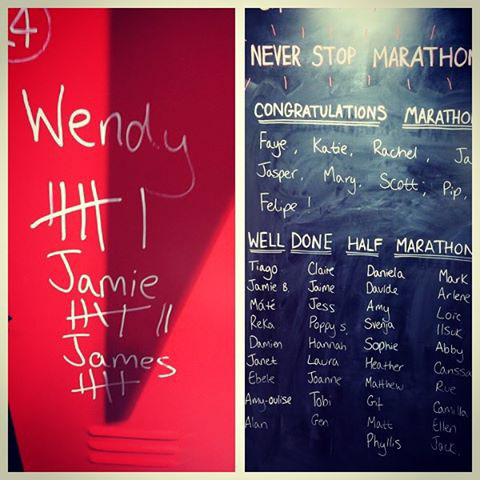 4
Wendy
Jamie
James
NEVER STOP MARATHON
CONGRATULATIONS MARATHO
Faye, Katie, Rachel, Ja
Jasper, Mary, Scott, Pip,
Felipe!
WELL DONE HALF MARATHON
Tiago Claire Daniela Mark
Jamie B. Jaime Davide Arlene
Máté Jess Amy Loic
Reka Poppy S. Svenja
Damien Hannah Sophie Abby
Janet Laura Heather
Ebele Joanne Matthew
Amy-ouise Tobi Git Camilla
Alan Gen Matt Ellen
Phyllis Jack.